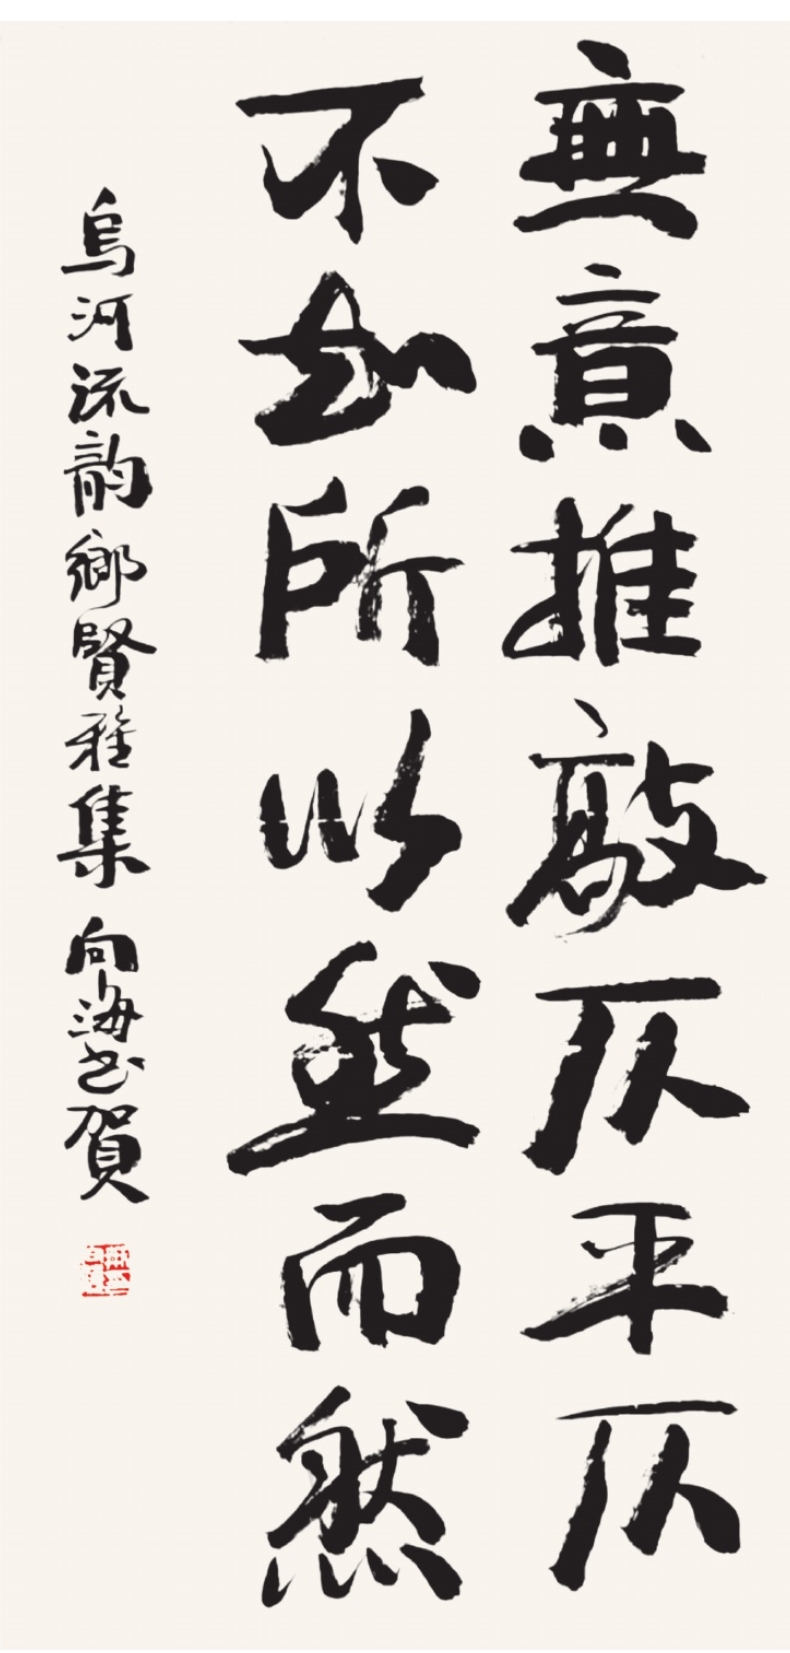 無意推敲仄平仄
不知所以然而然
烏河流韵鄉賢雅集 向海书賀